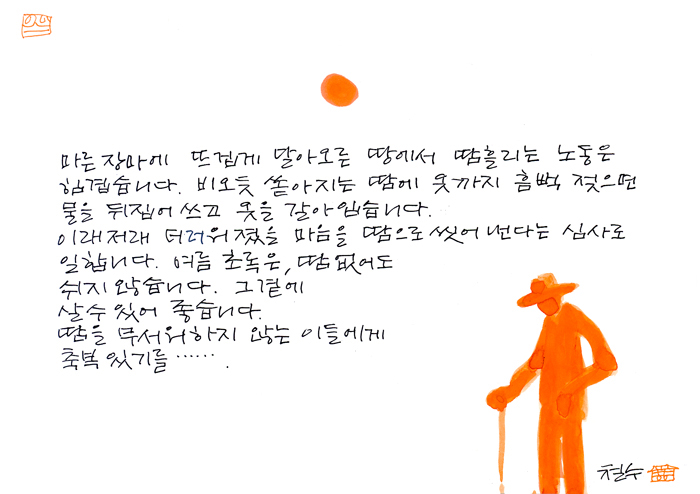 마른 장마에 뜨겁게 달아오른 땅에서 땀흘리는 노동은
힘겹습니다. 비오듯 쏟아지는 땀에 옷까지 흠뻑 젖으면
물을 뒤집어쓰고 옷을 갈아입습니다.
이래저래 더러워졌을 마음을 땀으로 씻어낸다는 심사로
일합니다. 여름 초록은, 땀없어도
쉬지 않습니다. 그곁에
살 수 있어 좋습니다.
땀을 무서워하지 않는 이들에게
축복 있기를 …… .
철수